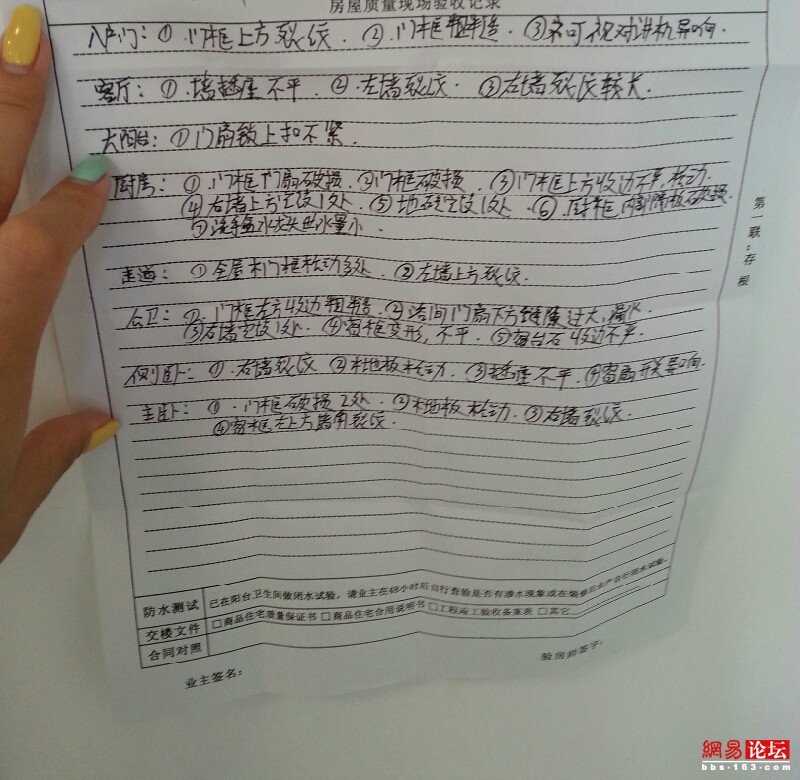 房屋质量现场验收记录
入户门：① 门框上方裂纹 ② 门框粗糙 ③ 可视对讲机异响.
客厅：① 墙插座不平. ② 左墙裂纹. ③ 右墙裂纹较大.
大阳台：① 门扇锁上扣不紧.
厨房：① 门框门扇破损. ② 门框破损. ③ 门框上方收边不平,松动.
④ 右墙上方空鼓1处 ⑤ 地砖空鼓1处 ⑥ 厨柜内部隔板破损
⑦ 洗手盆水龙头出水量小.
走道：① 全屋木门框松动多处. ② 左墙上方裂纹.
公卫：① 门框左方收边粗糙 ② 浴间门扇下方缝隙过大,漏水
③ 右墙空鼓1处. ④ 窗框变形,不平. ⑤ 窗台石收边不平.
次卧：① 右墙裂纹 ② 木地板松动. ③ 插座不平. ④ 窗扇开关异响.
主卧：① 门框破损2处. ② 木地板松动. ③ 右墙裂纹.
④ 窗框左上方墙角裂纹.
第一联：存根
防水测试 已在阳台卫生间做闭水试验，请业主在48小时后自行查验是否有渗水现象或在装修后生产自行闭水试验。
交楼文件 □商品住宅质量保证书 □商品住宅合用说明书 □工程竣工验收备案表 □其它
合同对照
业主签名： 验房师签字：
網易论坛
bbs·163·com